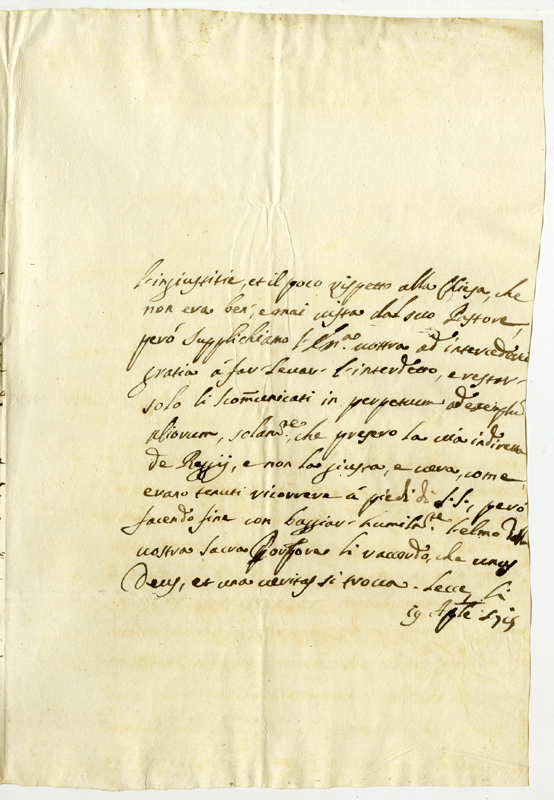 l'ingiustitie, et il poco rispetto alla Chiesa, che
non era ben, e mai vista dal suo Pastore,
però supplichiamo l'Em.za vostra ad intercedere
gratia à far levar l'interdetto, e restar
solo li scom̃unicati in perpetuum ad exemplũ
aliorum, solam.te, che presero la via indiretta
de Reggij, e non la giusta, e vera, come
erano tenuti ricorrere à piedi di S.S., però
facendo fine con baggiar humilm.te l'elmo della
vostra Sacra li raccordo, che unus
Deus, et una veritas si trova. Lecce li
19 Aple 1715